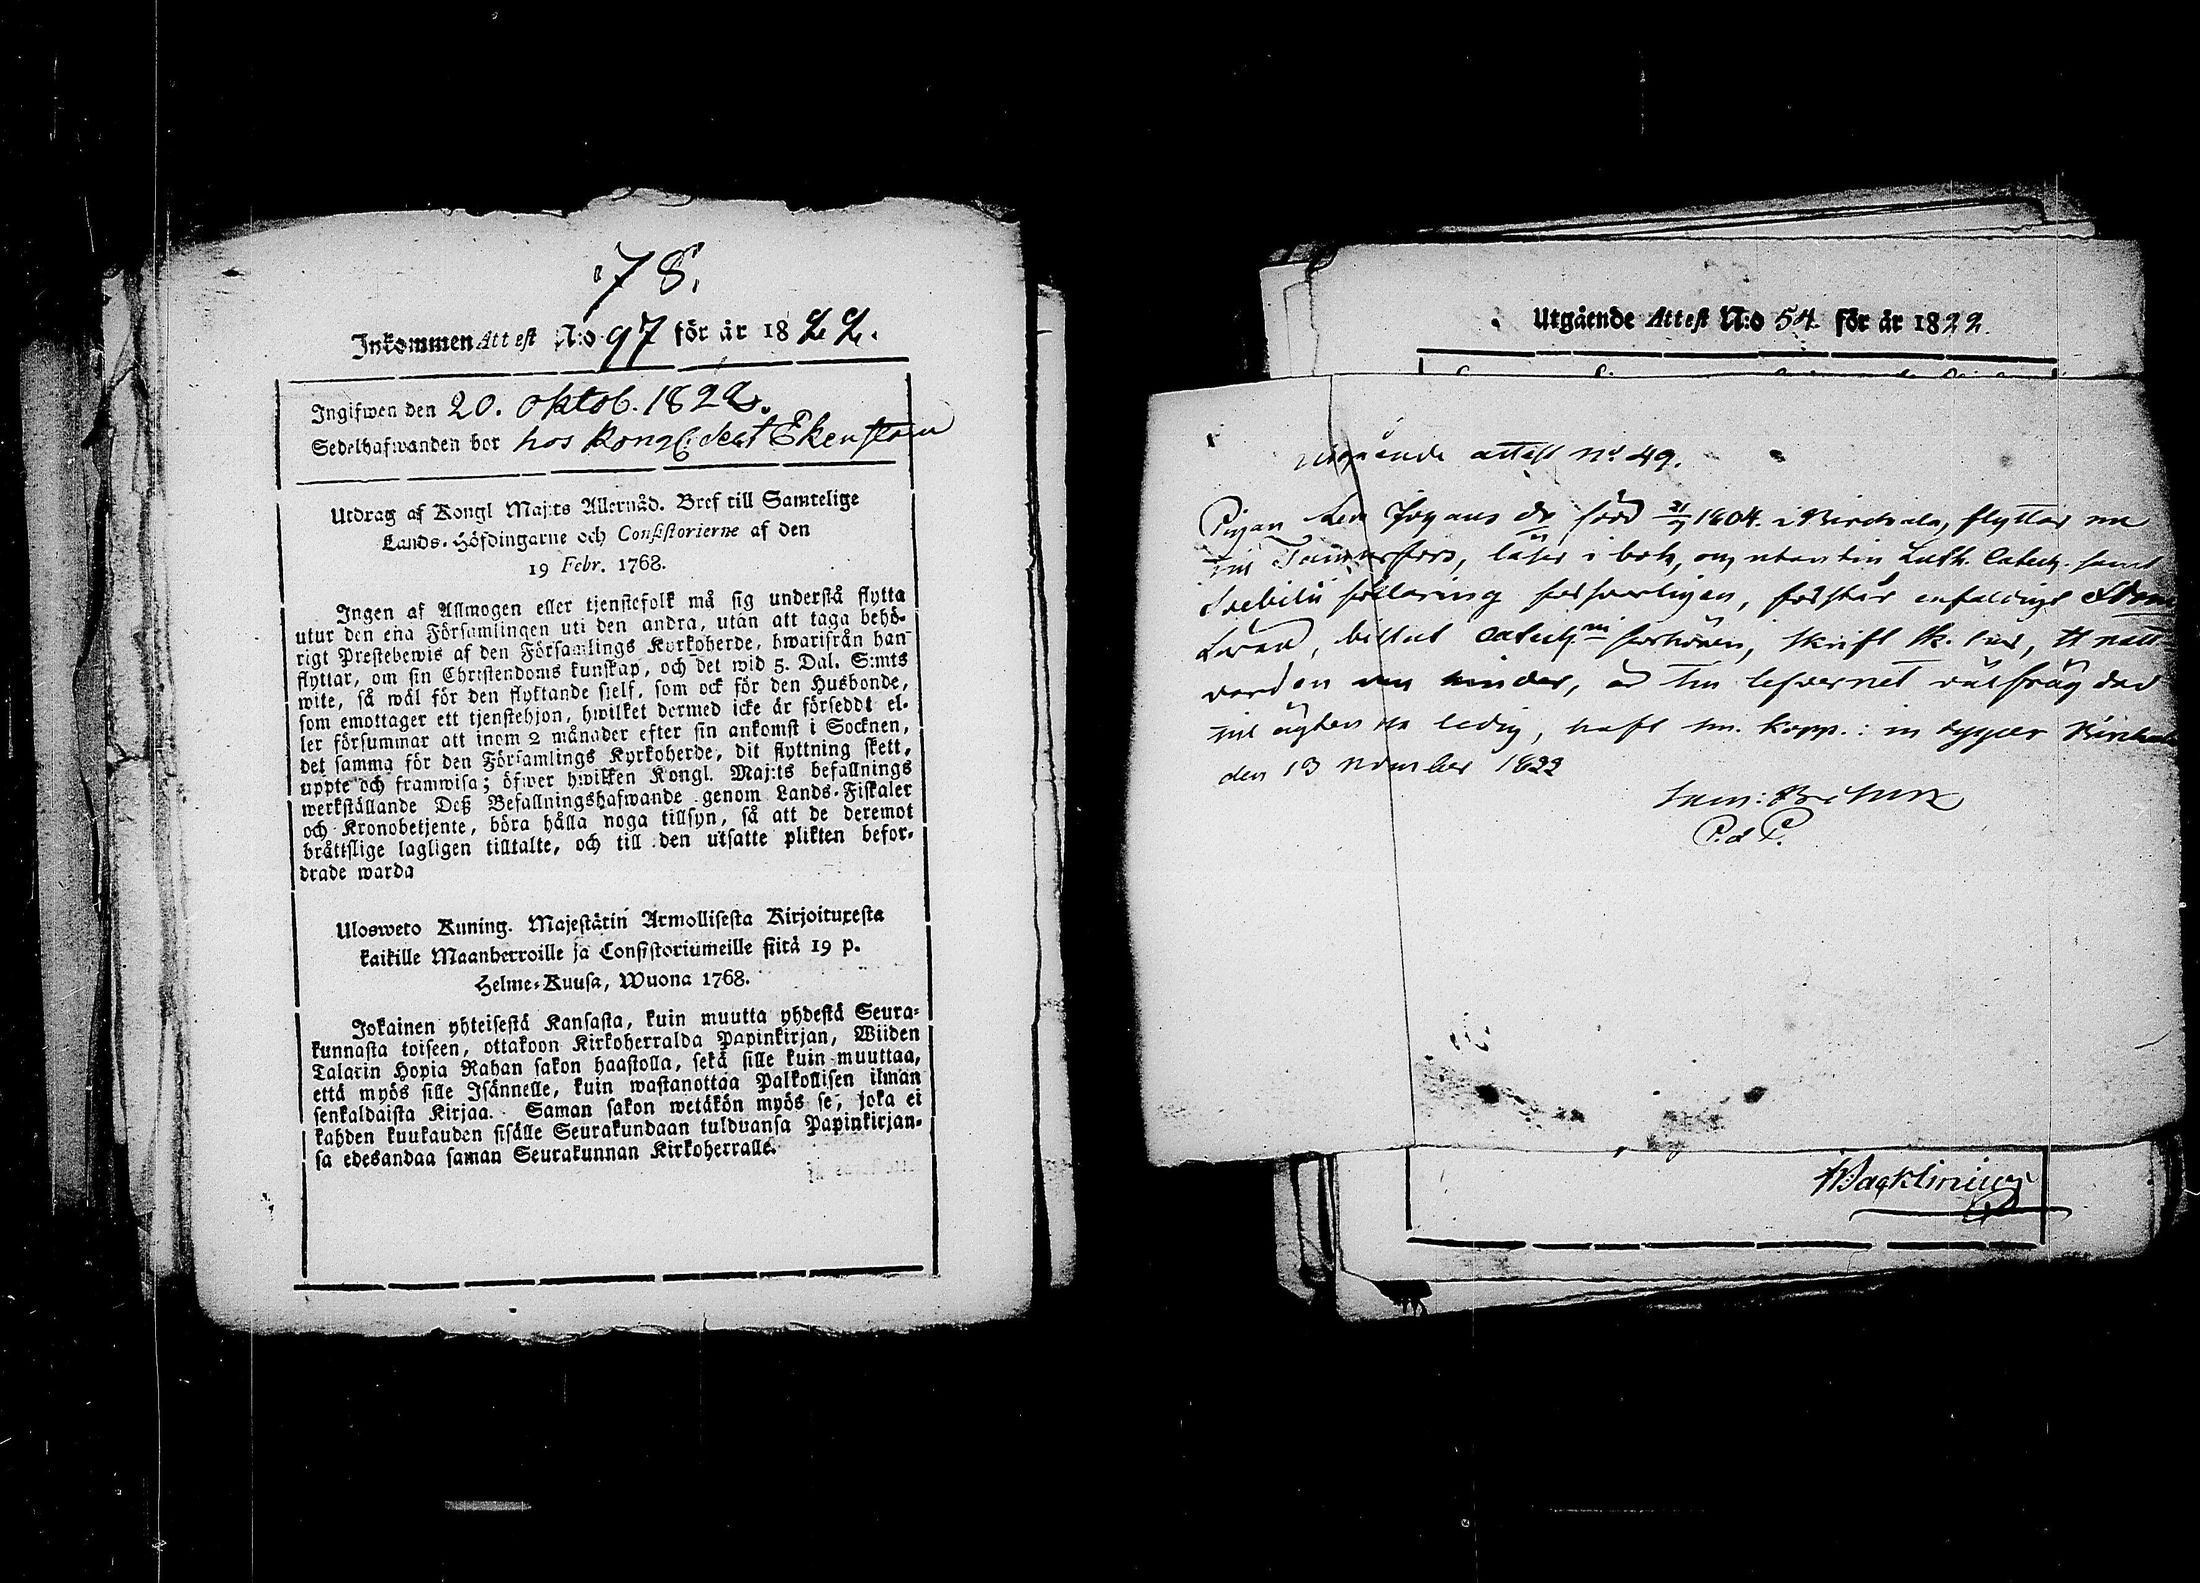 78.
Inkommen Attest N:o 97 för år 1822.
Ingifwen den 20. oktob. 1822.
Sedelhafwanden bor hos Kongl. Ekenstam
Utdrag af Kongl Maj:ts Allernåd. Bref till Samtelige
Lands-Höfdingarne och Consistorierne af den
19 Febr. 1768.
Ingen af Allmogen eller tjenstefolk må sig understå flytta
utur den ena Församlingen uti den andra, utan att taga behö-
rigt Prestebewis af den Församlings Kyrkoherde, hwarifrån han
flyttar, om sin Christendoms kunskap, och det wid 5. Dal. S:mts
wite, så wäl för den flyttande sjelf, som ock för den Husbonde,
som emottager ett tjenstehjon, hwilket dermed icke är förseddt el-
ler försummar att inom 2 månader efter sin ankomst i Socknen,
det samma för den Församlings Kyrkoherde, dit flyttning skett,
uppte och framwisa; öfwer hwilken Kongl. Maj:ts befallnings
werkställande Deß Befallningshafwande genom Lands-Fiskaler
och Kronobetjente, böra hålla noga tillsyn, så att de deremot
bråttslige lagligen tilltalte, och till den utsatte plikten befor-
drade warda
Ulosweto Kuning. Majestätin Armollisesta Kirjoituxesta
kaikille Maanherroille ja Consistoriumeille siitä 19 p.
Helme-Kuusa, Wuona 1768.
Jokainen yhteisestä Kansasta, kuin muutta yhdestä Seura-
kunnasta toiseen, ottakoon Kirkoherralda Papinkirjan, Wiiden
Talarin Hopia Rahan sakon haastolla, sekä sille kuin muuttaa,
että myös sille Isännelle, kuin wastanottaa Palkollisen ilman
senkaldaista Kirjaa. Saman sakon wetäkön myös se, joka ei
kahden kuukauden sisälle Seurakundaan tulduansa Papinkirjan-
sa edesandaa saman Seurakunnan Kirkoherralle.
Utgående Attest N:o 54. för år 1822.
Utgående attest No 49.
Pigan Lea Johans dr född 21/9 1804. i Birckala, flyttar nu
till Tammerfors, läser i bok, og utantin Luth. Catech. samt
Svebilii förklaring försvarligen, förstår enfaldigt
Läran, bittut catech:mi förhören, skrift
varden utan hinder, är till lefvernet välfrägdad
till ägtenskap ledig, haft kopp.: intygar Birckala
den 13 November 1822
Sam:
P.d P.
Backlinius